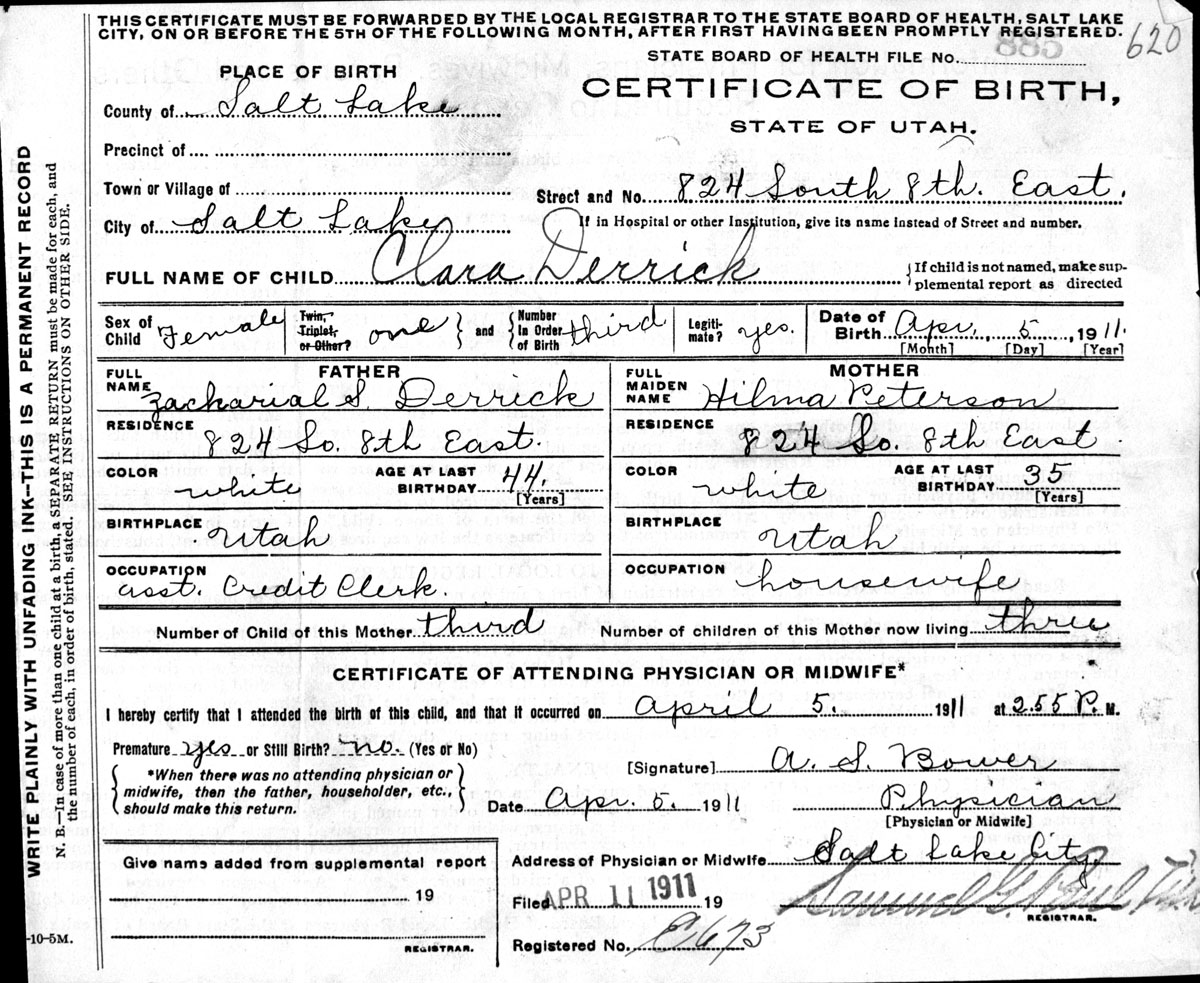 THIS CERTIFICATE MUST BE FORWARDED BY THE LOCAL REGISTRAR TO THE STATE BOARD OF HEALTH, SALT LAKE
CITY, ON OR BEFORE THE 5TH OF THE FOLLOWING MONTH, AFTER FIRST HAVING BEEN PROMPTLY REGISTERED.
620
STATE BOARD OF HEALTH FILE No. 885
PLACE OF BIRTH
CERTIFICATE OF BIRTH,
STATE OF UTAH.
County of Salt Lake
Precinct of
Town or Village of
Street and No. 824 South 8th. East.
City of Salt Lake
If in Hospital or other Institution, give its name instead of Street and number.
FULL NAME OF CHILD Clara Derrick
{If child is not named, make sup-
plemental report as directed
Sex of Child Female
Twin, Triplet, or Other? one } and { Number In Order of Birth third
Legiti- mate? yes.
Date of Birth Apr. 5, 1911.
[Month] [Day] [Year]
FATHER
FULL NAME Zacharial S. Derrick
RESIDENCE 824 So. 8th East.
COLOR white AGE AT LAST BIRTHDAY 44. [Years]
BIRTHPLACE Utah
OCCUPATION asst. Credit Clerk.
MOTHER
FULL MAIDEN NAME Hilma Peterson
RESIDENCE 824 So. 8th East.
COLOR white AGE AT LAST BIRTHDAY 35 [Years]
BIRTHPLACE Utah
OCCUPATION housewife
Number of Child of this Mother third Number of children of this Mother now living three
CERTIFICATE OF ATTENDING PHYSICIAN OR MIDWIFE*
I hereby certify that I attended the birth of this child, and that it occurred on April 5. 1911 at 2.55 P. M.
Premature yes or Still Birth? no. (Yes or No)
{ *When there was no attending physician or
midwife, then the father, householder, etc.,
should make this return. }
[Signature] A. S. Bower
Date Apr. 5. 1911 Physician
[Physician or Midwife]
Address of Physician or Midwife Salt Lake City
Give name added from supplemental report
19
REGISTRAR.
Filed APR 11 1911 19
Samuel G. Paul
REGISTRAR.
Registered No. 673
WRITE PLAINLY WITH UNFADING INK—THIS IS A PERMANENT RECORD
N. B.—In case of more than one child at a birth, a SEPARATE RETURN must be made for each, and
the number of each, in order of birth, stated. SEE INSTRUCTIONS ON OTHER SIDE.
-10-5M.